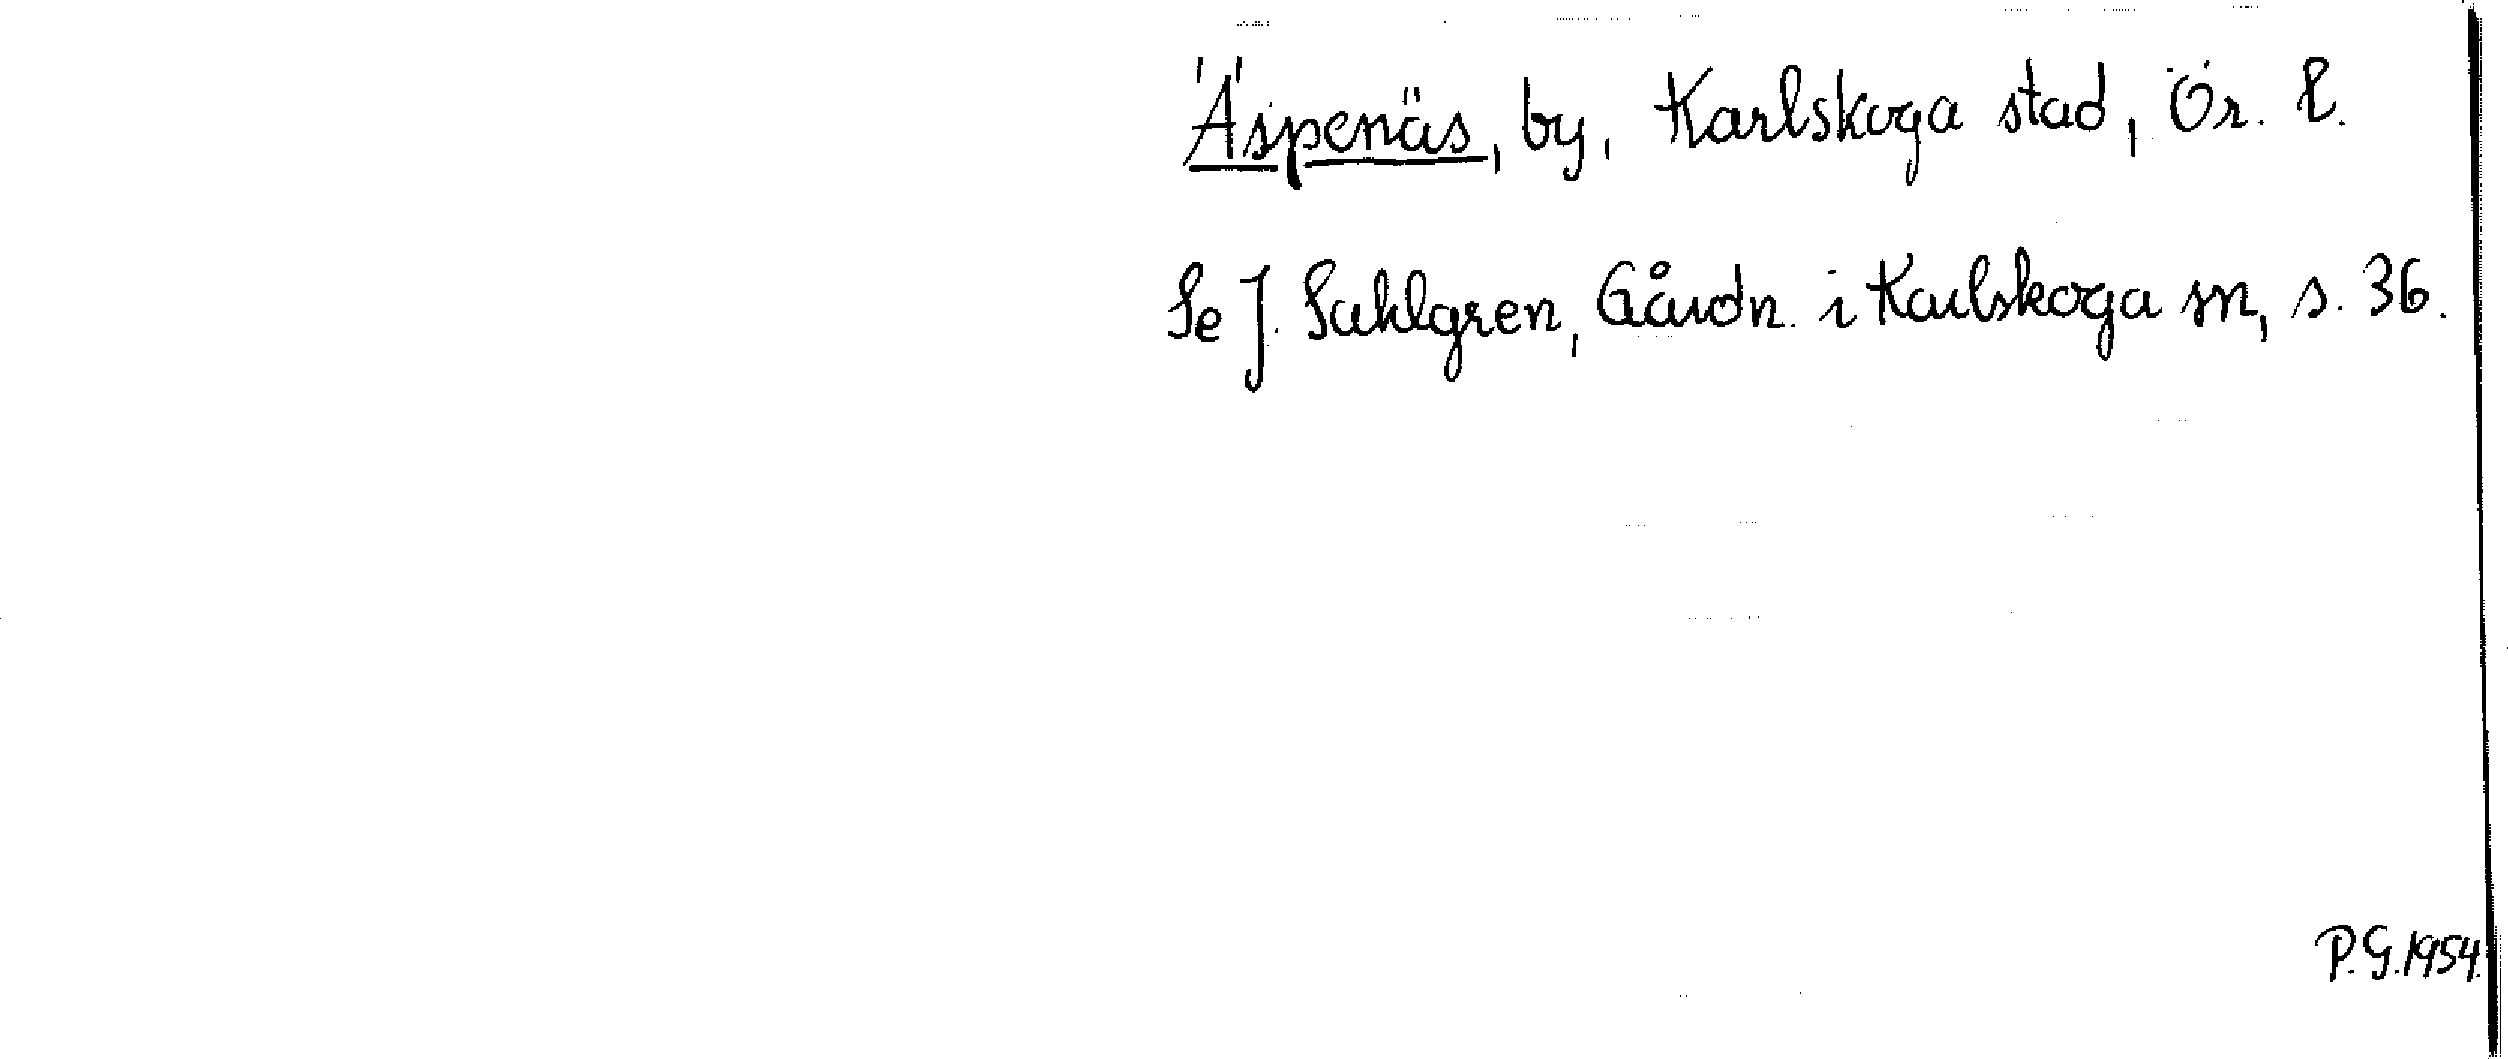 Äspenäs, by, Karlskoga stad, Ör. l.
Se J. Sahlgren, Gårdn. i Karlskoga sn, s. 36.
P.G. 1954